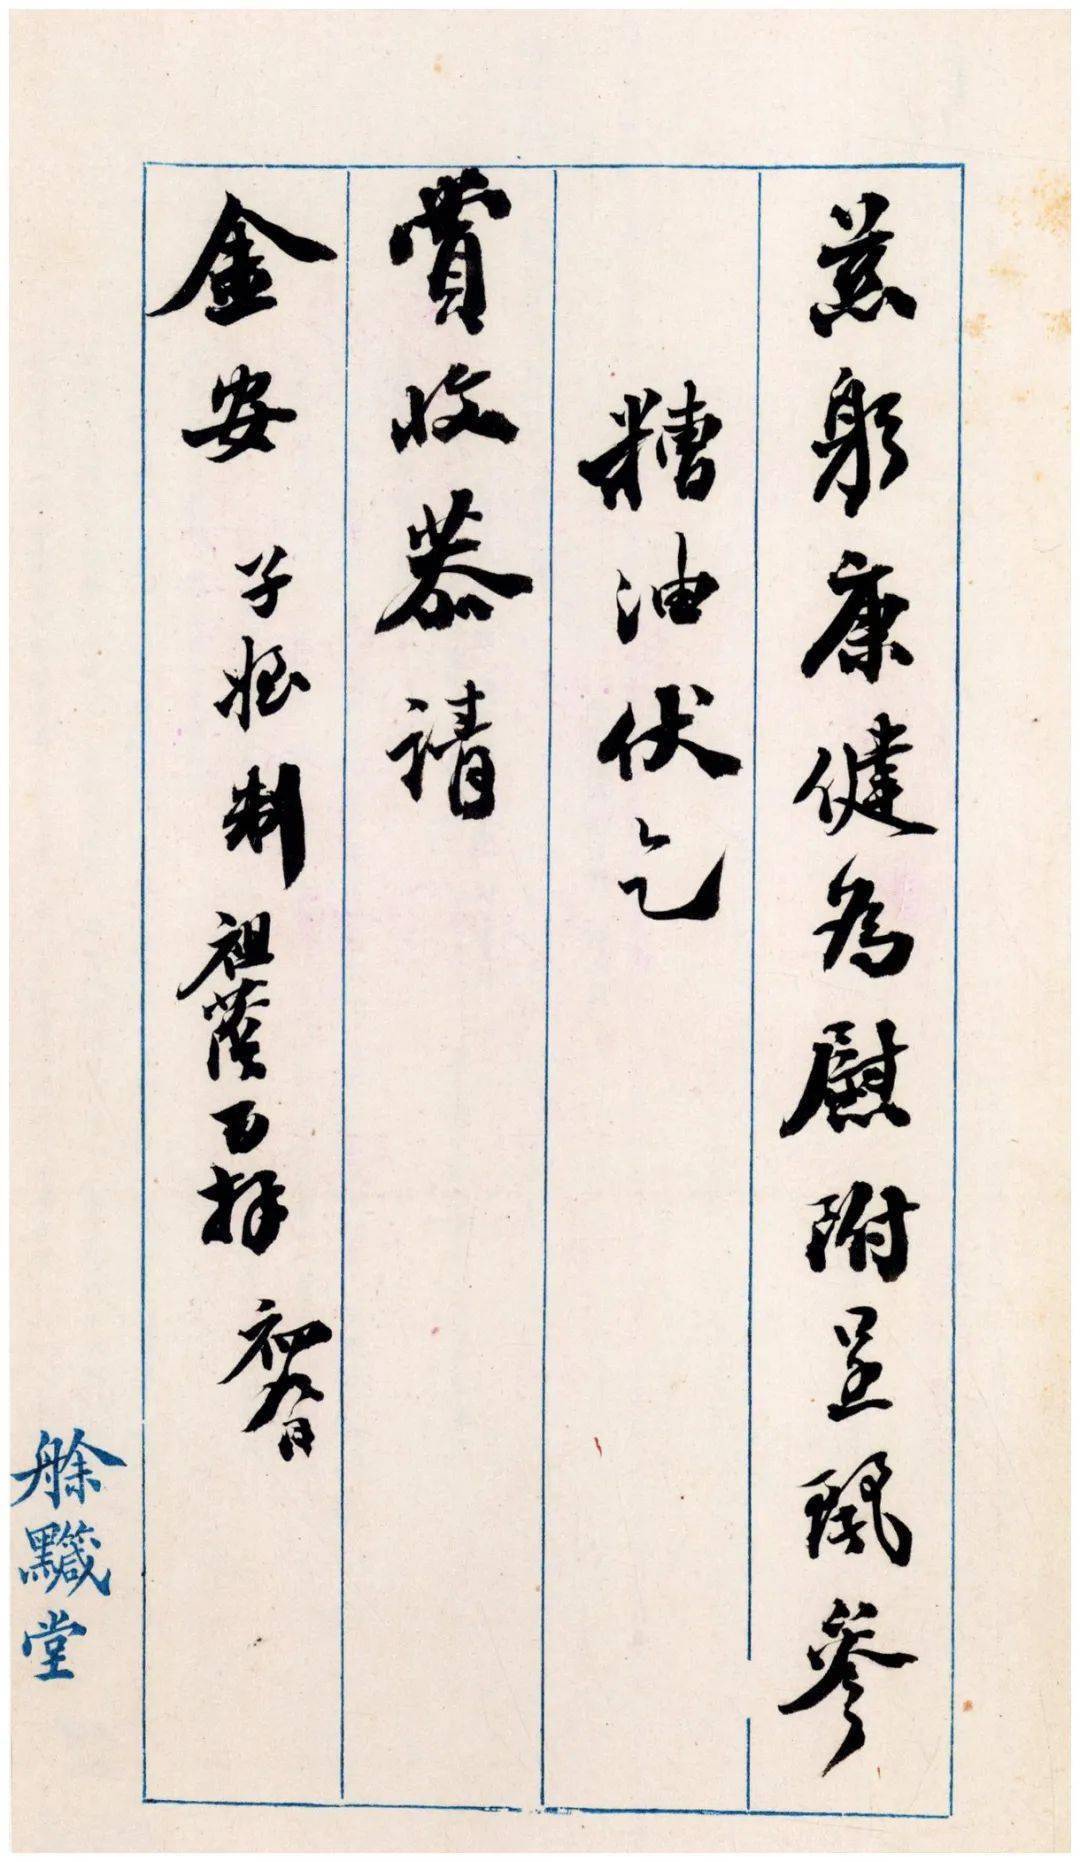 慈躬康健為慰附呈參
糟油伏乞
賞收恭請
金安 子姪制祖蔭百拜 初日
艅堂